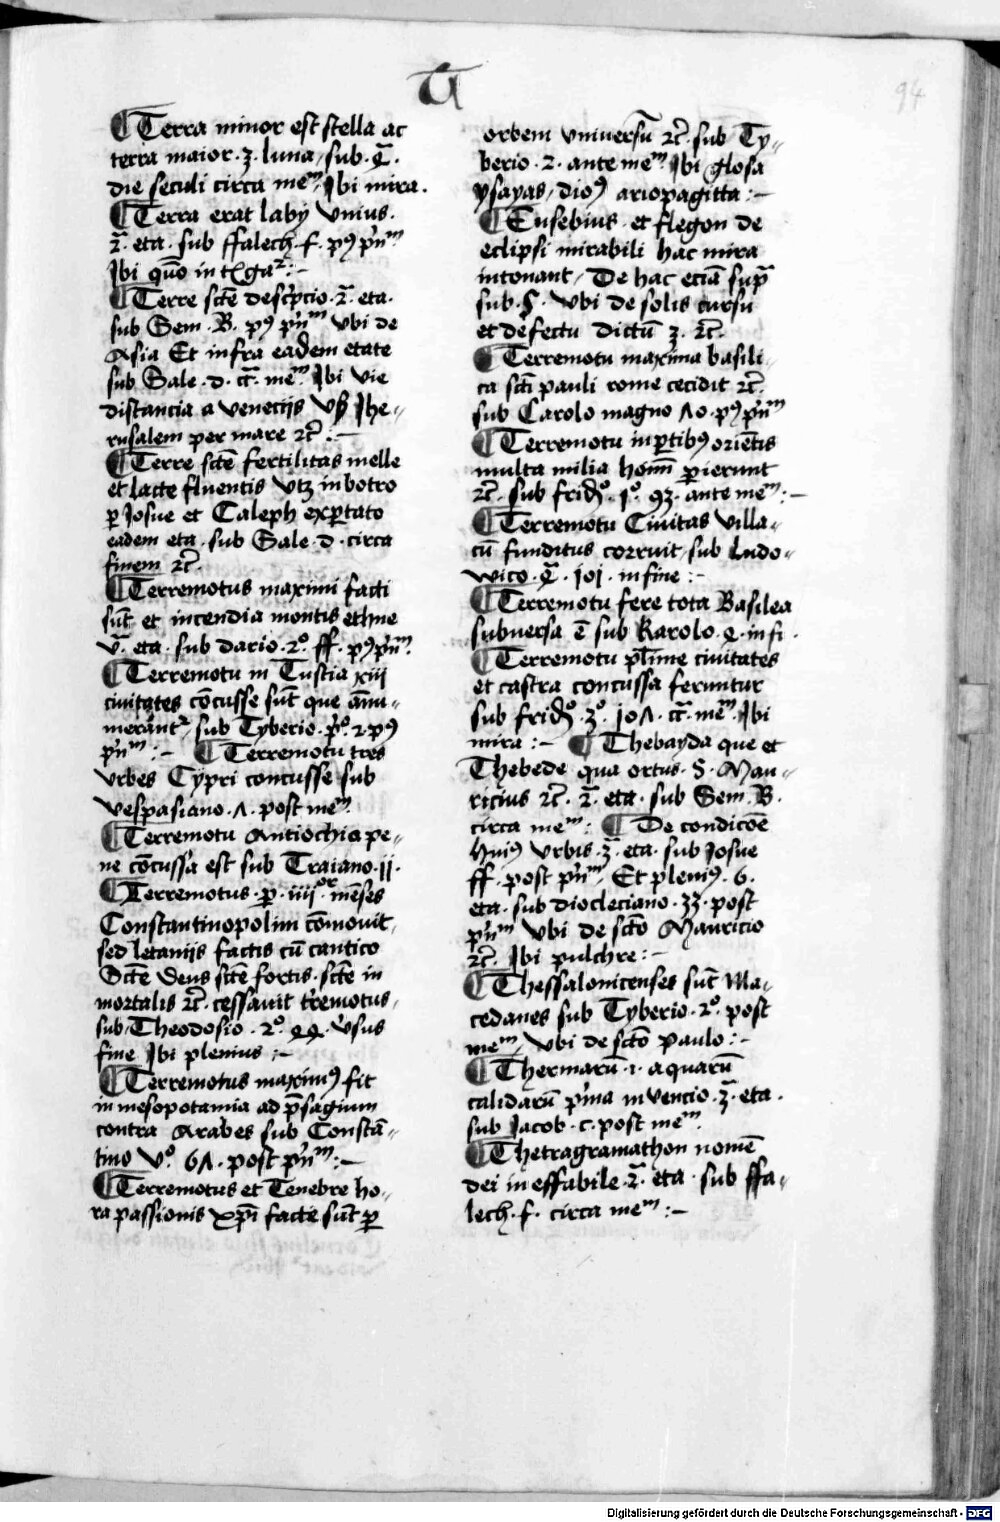 94
¶ Terra minor est stella ac
terra maior · ʒ · luna / sub · q̄ ·
die seculi circa meᵐ / Ibi mira ·
¶ Terra erat labÿ vnius ·
2̄ · eta · sub ffalech · f · pꝰ pͥnᵐ
Ibi quō in
¶ Terre scͤte descͥpcio · 2̄ · eta ·
sub Sem · B · pꝰ pͥnᵐ vbi de
Asia Et infra eadem etate
sub Sale · d · cc̄ · meᵐ Ibi vie
distancia a venecijs vsꝫ Ihe〃
rusalem per mare ⁊c̄ : –
¶ Terre scͤte fertilitas melle
et lacte fluentis vtꝫ in botro
ꝑ Josue et Caleph exꝑtato
eadem eta · sub Sale · d · circa
finem ⁊c̄
¶ Terremotus maximi facti
sūt et incendia montis ethne
v̄ · eta · sub dario · 2º · ff · pꝰ pͥnᵐ
¶ Terremotu in Tuscia xiii
ciuitates cōcusse sūt que ānu〃
merāntᷣ / sub Tyberio · pͦ · 2 · pꝰ
pͥnᵐ : – ¶ Terremotu tres
vrbes Cÿpri concusse sub
vespasiano · ʌ · post meᵐ
¶ Terremotu Antiochia pe〃
ne cōcussa est sub Traiano · ii ·
¶ Terremotus · ꝑ · iiiiᵒʳ mēses
Constantinopolim cōmouit
sed letanijs factis cū cantico
Scͤte Deus scͤte fortis · scͤte in
mortalis ⁊c̄ · cessauit tr̄remotus〃
sub Theodosio · 2º · ꝗꝗ · v̓sus
fine Ibi plenius : –
¶ Terremotus maximꝰ fit
in mesopotamia ad p̄sagium
contra Arabes sub Constā〃
tino vº · 6ʌ · post pͥnᵐ : –
¶ Terremotus et Tenebre ho〃
ra passionis xp̄i facte sūt ꝑ
orbem vniuersū ⁊c̄ · sub Ty〃
berio · 2 · ante meᵐ Ibi glosa
ysayas / dioꝰ ariopagitta : –
¶ Eusebius · et flegon de
eclipsi mirabili hac mira
intonant / De hac eciā sup̄ᵃ
sub · f · vbi de solis cursu
et defectu dictū ʒ · ⁊c̄ ·
¶ Terremotu maxima basili
ca scī pauli rome cecidit ⁊c̄
sub Carolo magno ʌo · pꝰ pͥnᵐ
¶ Terremotu in ꝑtibꝰ oriētis
multa milia hoīm ꝑierunt
⁊c̄ · sub fridͥº · Iº · 9ʒ · ante meᵐ : –
¶ Terremotu Ciuitas villa〃
cū funditus corruit / sub Ludo〃
wico · q̄ · 101 · in fine : –
¶ Terremotu fere tota Basilea
subuersa ē sub Karolo · ꝗ · in fi ·
¶ Terremotu pl̄ime ciuitates
et castra concussa feruntur
sub fridͥº · ʒº · 10ʌ · cc̄ · meᵐ Ibi
mira : – ¶ Thebayda que et
Thebede qua ortus · S · Mau〃
ricius ⁊c̄ · 2̄ · eta · sub Sem · B ·
circa meᵐ : ¶ De condicōe
huiꝰ vrbis · ʒ̄ · eta · sub Josue
ff · post pͥnᵐ / Et pleniꝰ · 6 ·
eta · sub diocleciano · ʒʒ · post
pͥnᵐ vbi de scͦto Mauricio
⁊c̄ · Ibi pulchre : –
¶ Thessalonicenses sūt Ma〃
cedanes sub Tyberio · 2º · post
meᵐ / vbi de scͦto paulo : –
¶ Thermarū · i · aquarū
calidarū pͥma invencio · ʒ̄ · eta ·
sub Jacob · c · post meᵐ
¶ Thetragramathon nomē
dei ineffabile · 2̄ · eta · sub ffa〃
lech · f · circa meᵐ : –
Digitalisierung gefördert durch die Deutsche Forschungsgemeinschaft - DFG